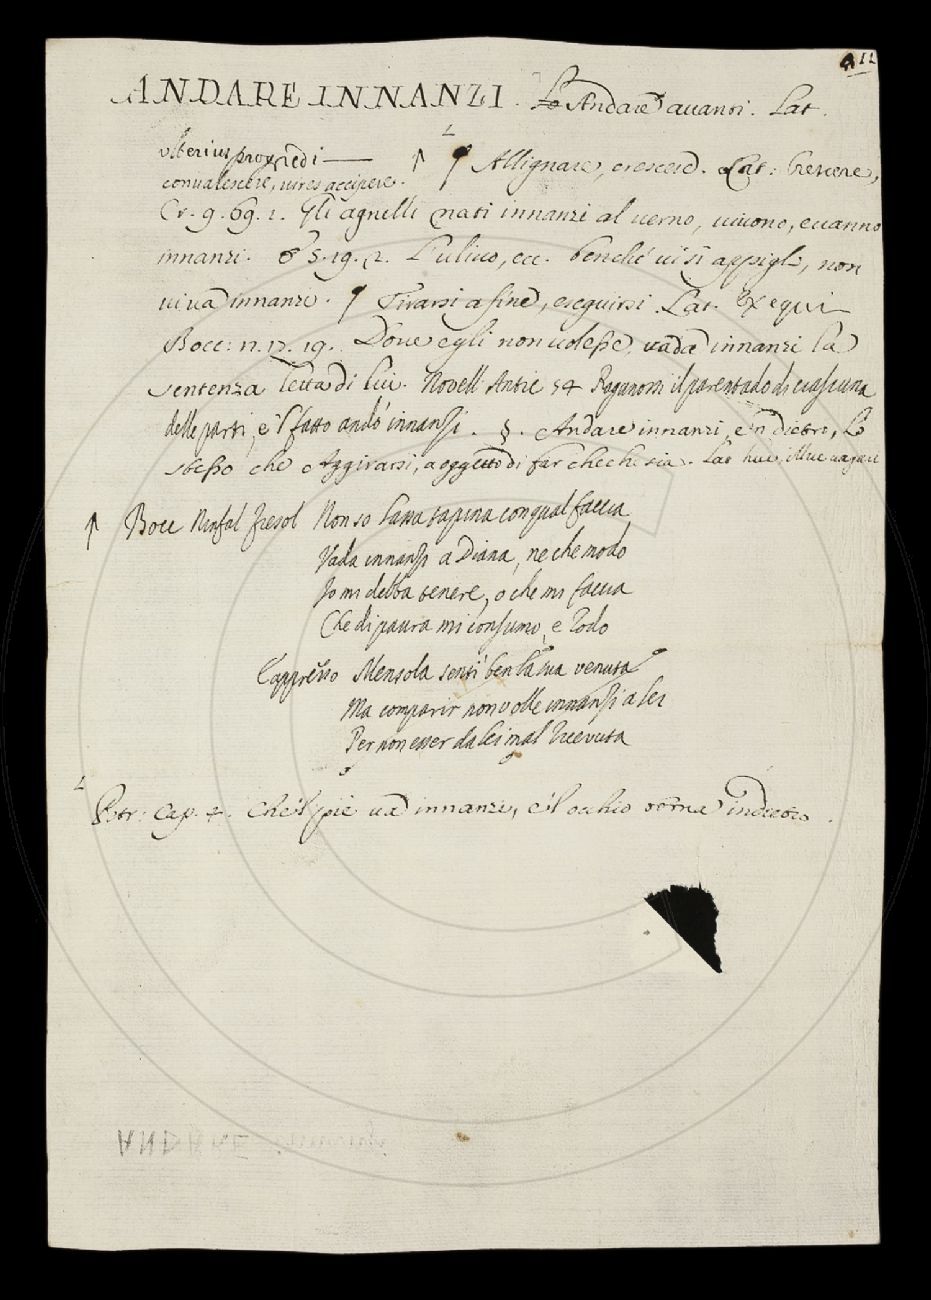 ANDARE INNANZI. Lo Andare auanti. Lat.
ulterius progredi — ↑ ¶ Allignare, crescere. Lat: crescere,
conualescere, uires accipere.
Cr. 9. 69. 1. Gli agnelli nati innanzi al uerno, uiuono, e uanno
innanzi. & 5. 19. 2. L'uliuo, ec. benché ui si appigli, non
ui ua innanzi. ¶ Tirarsi a fine, eseguirsi. Lat. Exequi
Bocc: n. 17. 19. Doue egli non uolesse, uada innanzi la
sentenza letta di lui. Novell Antic 54 Raganorsi il parentado di ciascuna
delle parti, e 'l fatto andò innanzi. §. Andare innanzi, e 'n dietro, Lo
stesso che Aggirarsi, a oggetto di far checchesia. Lat huc, illuc uagari
↑ Bocc Ninfal Fiesol Non so lassa tapina con qual faccia
Vada innanzi a Diana, ne che modo
Io mi debba tenere, o che mi faccia
Che di paura mi consumo, e rodo
E appresso Mensola sentì ben la sua venuta
Ma comparir non volle innanzi a lei
Per non esser da lei mal ricevuta
Petr: Cap. 4. Che 'l pie ua innanzi, e 'l occhio torna indietro.